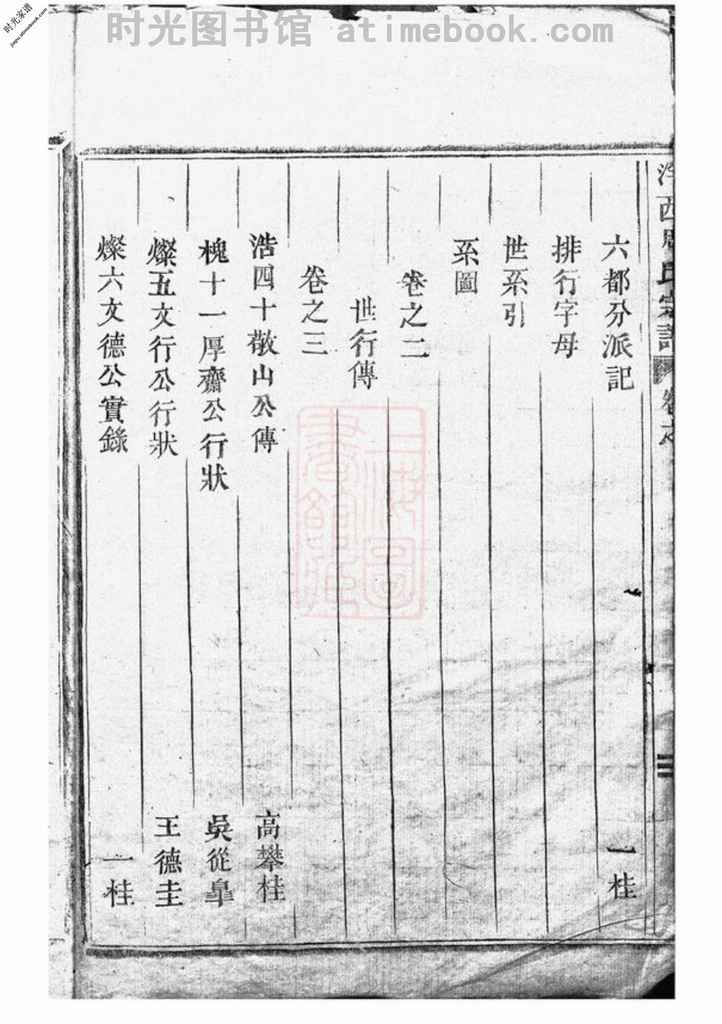 时光图书馆 atimebook.com
时光家谱
六都分派記 一桂
排行字母
世系引
系圖
卷之二
世行傳
卷之三
浩四十敬山公傳 高攀桂
槐十一厚齋公行狀 吳從臯
燦五文行公行狀 王德圭
燦六文德公實錄 一桂
西周氏宗譜 卷之
三
上海圖書館藏